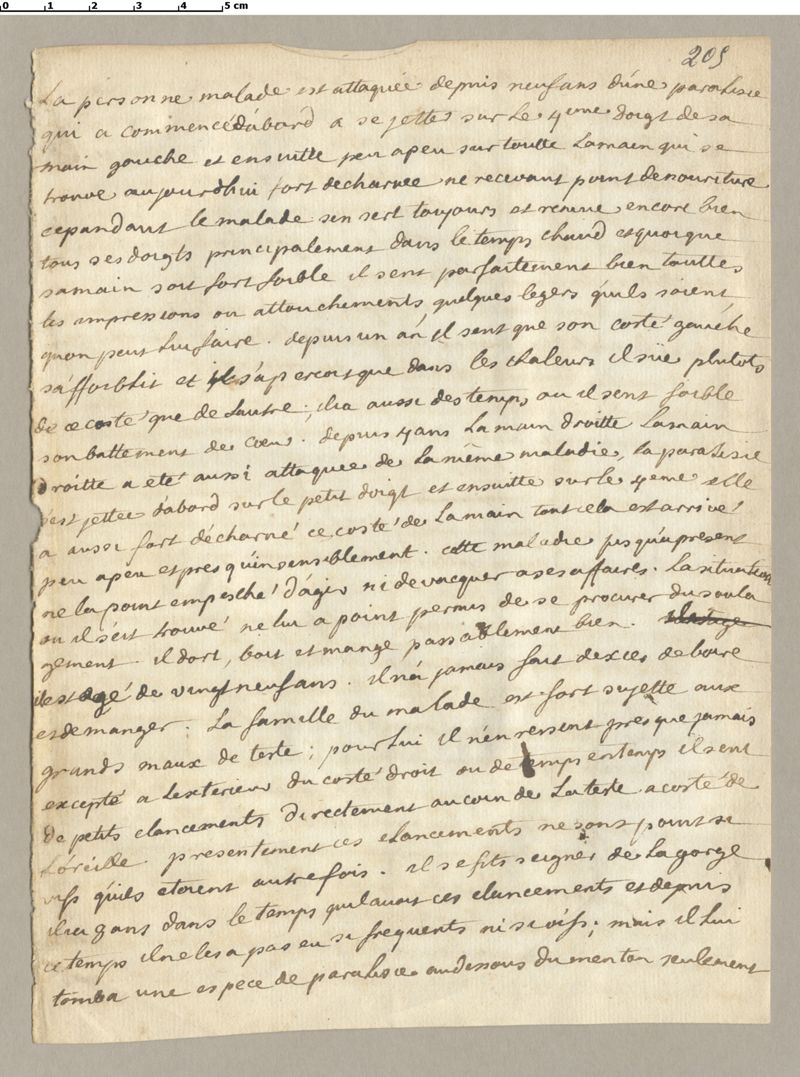 0 1 2 3 4 5 cm
209
La personne malade est attaquée depuis neufans d'une paralisie
qui a commencé d'abord a se jetter sur le 4eme doigt de sa
main gauche et ensuitte peu a peu sur toutte La main qui se
trouve aujourdhui fort decharnée ne recevant point de nouriture
cepandant le malade sen sert toujours et remue encore bien
tous ses doigts principalement dans le temps chaud et quoique
sa main soit fort foible il sent parfaitement bien touttes
les impressions ou attouchements quelques legers qu'ils soient
quon peut luy faire. depuis un an il sent que son costé gauche
s'affoiblit et il s'aperçoit que dans les chaleurs il süe plutots
de ce costé que de L'autre; il a aussi des temps ou il sent foible
son battement de cœur. depuis 4 ans La main droitte La main
droitte a eté aussi attaquée de La même maladie, la paralisie
s'est jettée d'abord sur le petit doigt et ensuitte sur le 4eme elle
a aussi fort décharné ce costé de La main tout cela est arrivé
peu a peu et presqu'insensiblement. cette maladie jusqu'a present
ne la point empesché d'agir ni de vacquer a ses affaires. La situation
ou il s'est trouvé ne lui a point permis de se procurer du soula
gement. il dort, boit et mange passablement bien.
il est agé de vingt neuf ans. il n'a jamais fait d'exces de boire
et de manger. La famille du malade est fort sujette aux
grands maux de teste; pour Lui il n'en ressent presque jamais
excepté a L'exterieur du costé droit ou de temps en temps il sent
de petits elancements directement au coin de La teste a costé de
L'oreille presentement ces elancements ne sont point si
vifs qu'ils etoient autrefois. il se fit seigner de La gorge
il y a 3 ans dans le temps qu'il avoit ces elancements et depuis
ce temps il ne les a pas eu si frequents ni si vifs; mais il lui
tomba une espece de paralisie au dessous du menton seulement